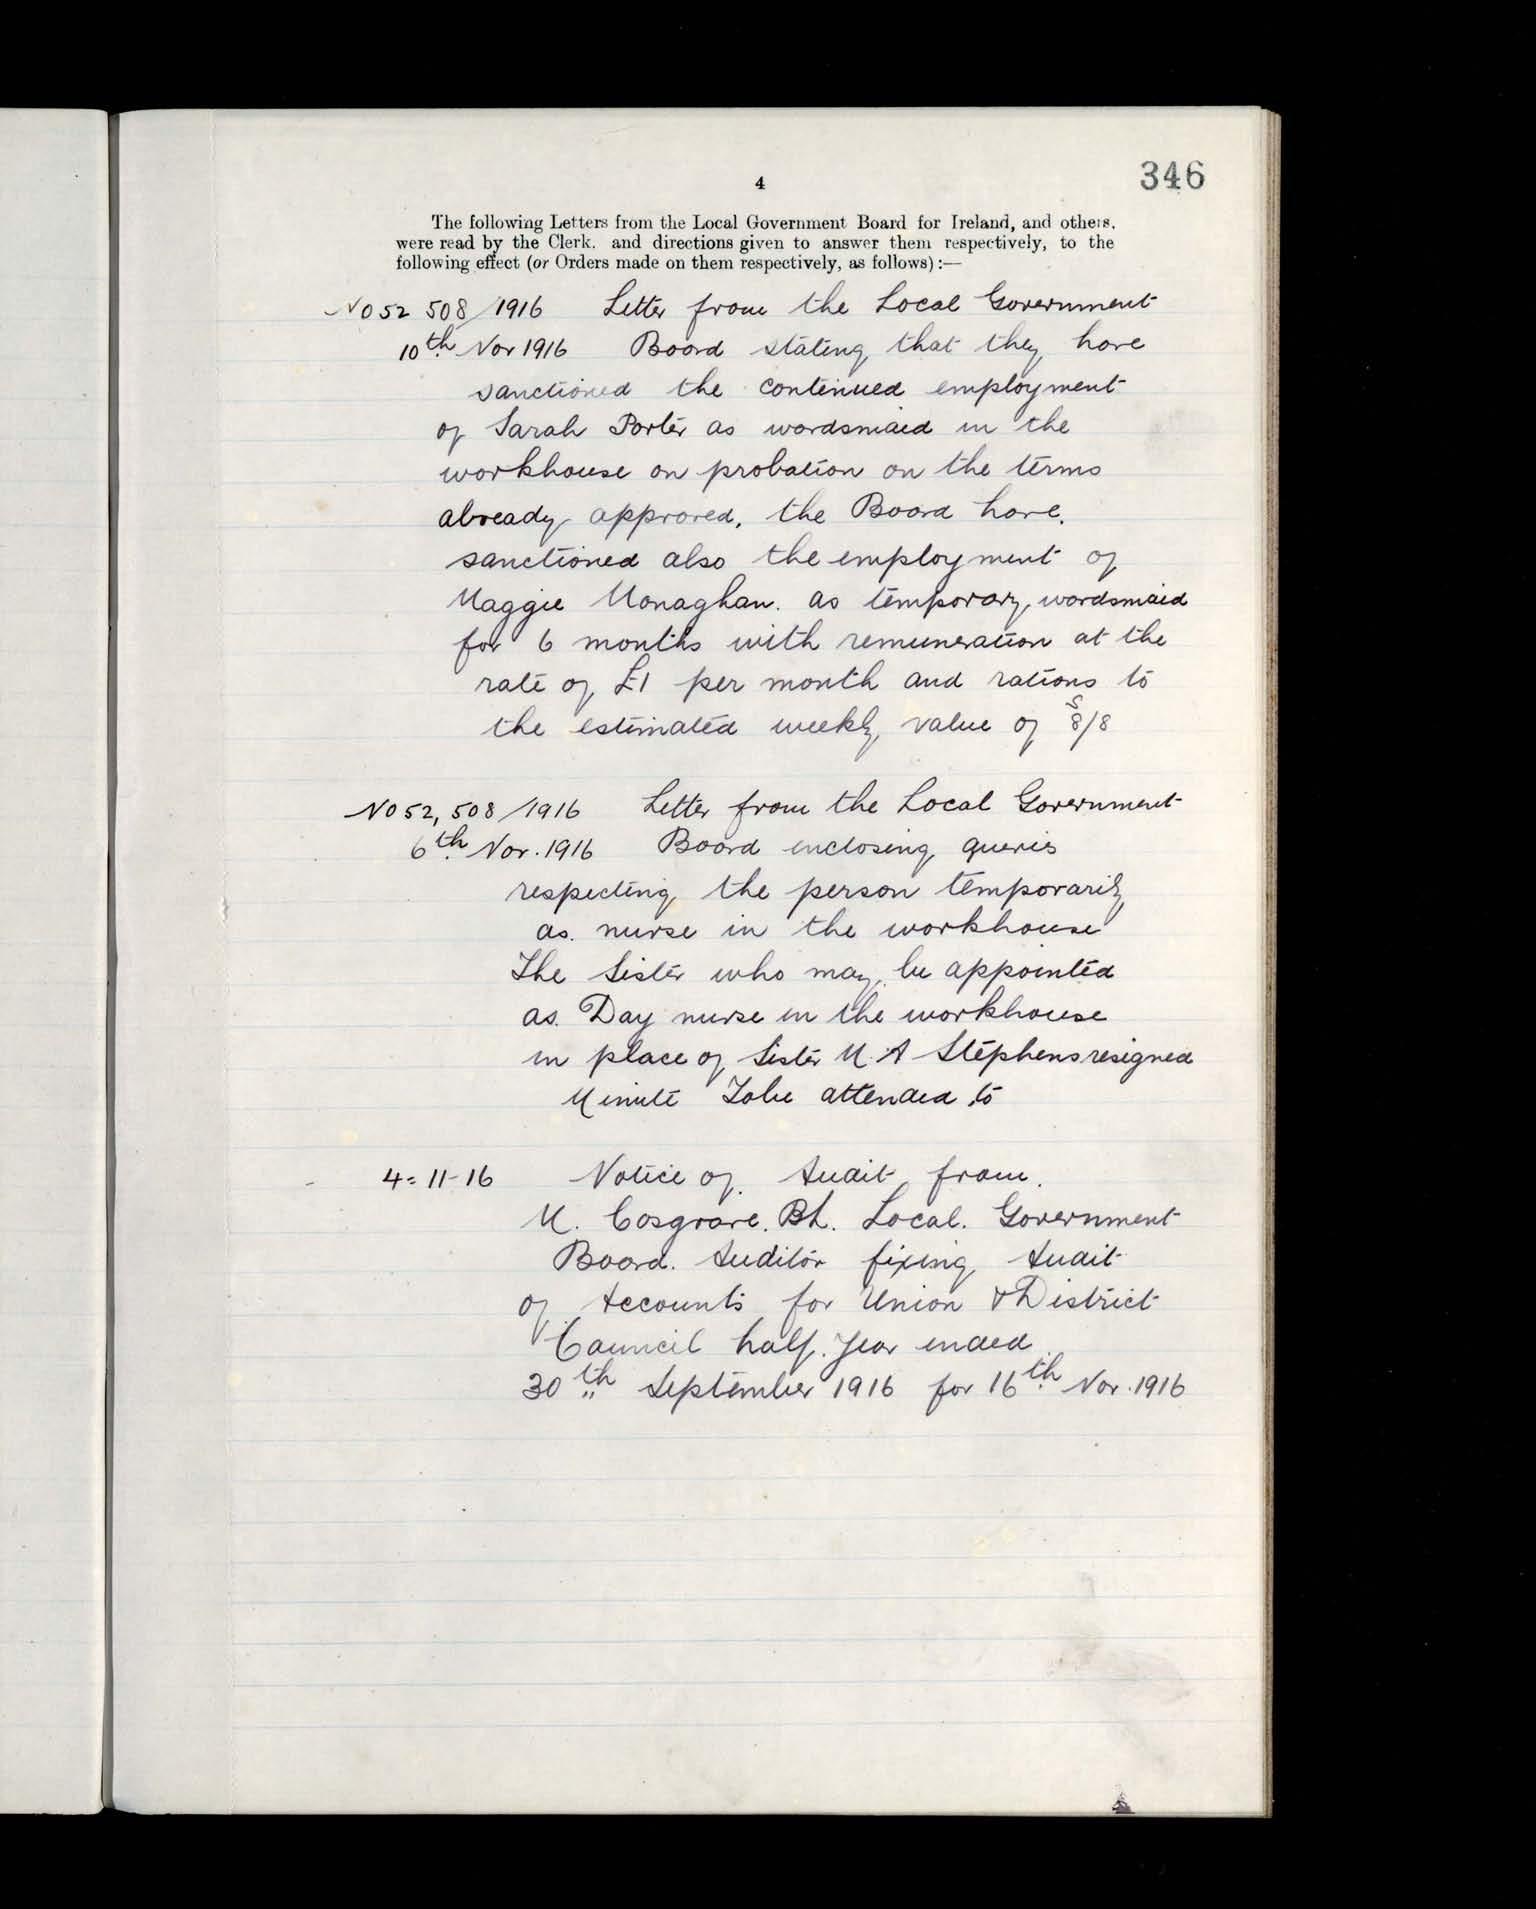 346
4
The following Letters from the Local Government Board for Ireland, and others,
were read by the Clerk, and directions given to answer them respectively, to the
following effect (or Orders made on them respectively, as follows) :—
No 52 508/1916 Letter from the Local Government
10th Nov 1916 Board stating that they have
sanctioned the continued employment
of Sarah Porter as wardsmaid in the
workhouse on probation on the terms
already approved, the Board have.
sanctioned also the employment of
Maggie Monaghan. as temporary wardsmaid
for 6 months with remuneration at the
rate of £1 per month and rations to
the estimated weekly value of 8s/8
No 52,508/1916 Letter from the Local Government
6th Nov. 1916 Board enclosing queries
respecting the person temporarily
as. nurse in the workhouse
The Sister who may be appointed
as. Day nurse in the workhouse
in place of Sister M. A Stephens resigned
Minute To be attended to
4-11-16 Notice of Audit from.
M. Cosgrave. BL. Local. Government
Board. Auditor fixing Audit
of Accounts for Union & District
Council half. Year ended
30th September 1916 for 16th Nov. 1916